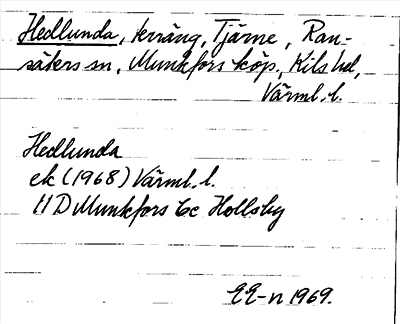 Hedlunda, terräng, Tjärne, Ran-
säters sn, Munkfors köp., Kils hd,
Värml. l.
Hedlunda
ek (1968) Värml. l.
11 D Munkfors 6c Hollsby
EE-n 1969.